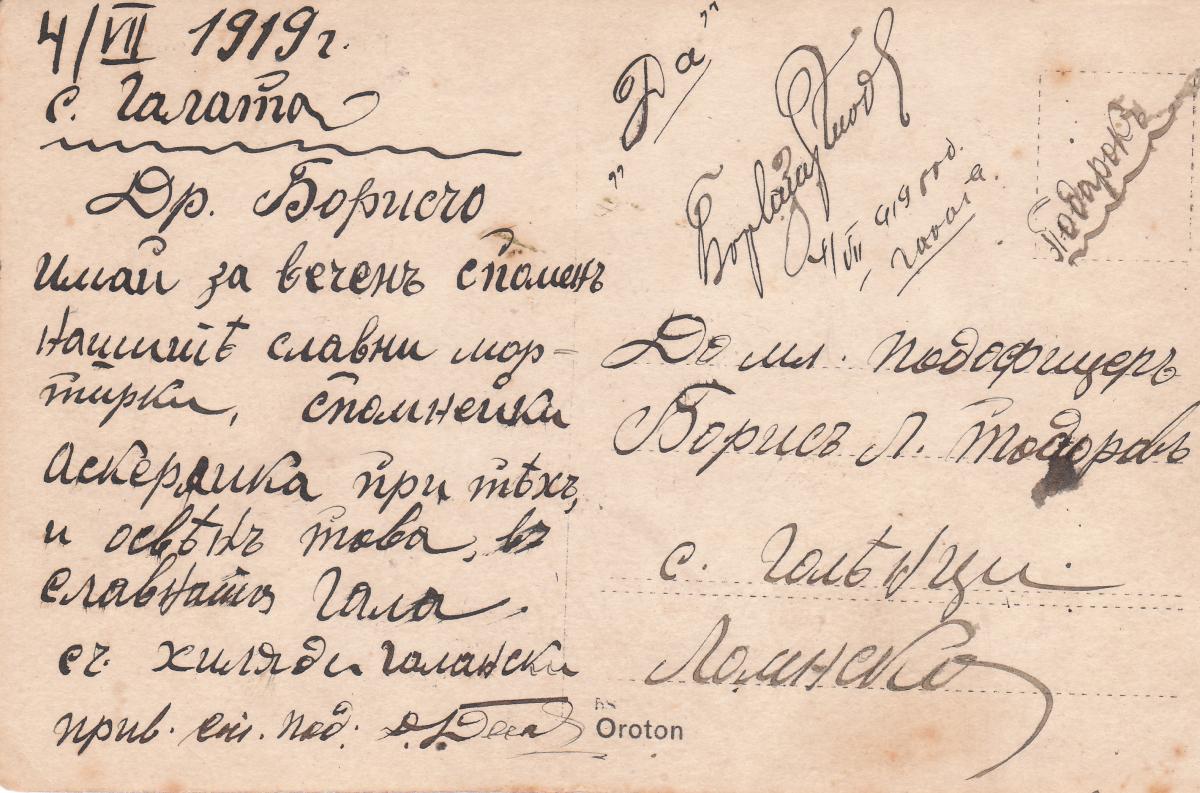 4/VII 1919 г.
с. Галата
Др. Борисчо
имай за веченъ споменъ
нашитѣ славни мор-
тирки, спомнейки
аскерлика при тѣхъ,
и освѣнъ това, въ
славната Гала
съ хиляди галански
прив.
"Да"
4/VII 919 год.
Галата.
Подарокъ
До мл. подофицеръ
Борисъ Л. Тодоровъ
с. Голѣнци.
Ломнско
Oroton